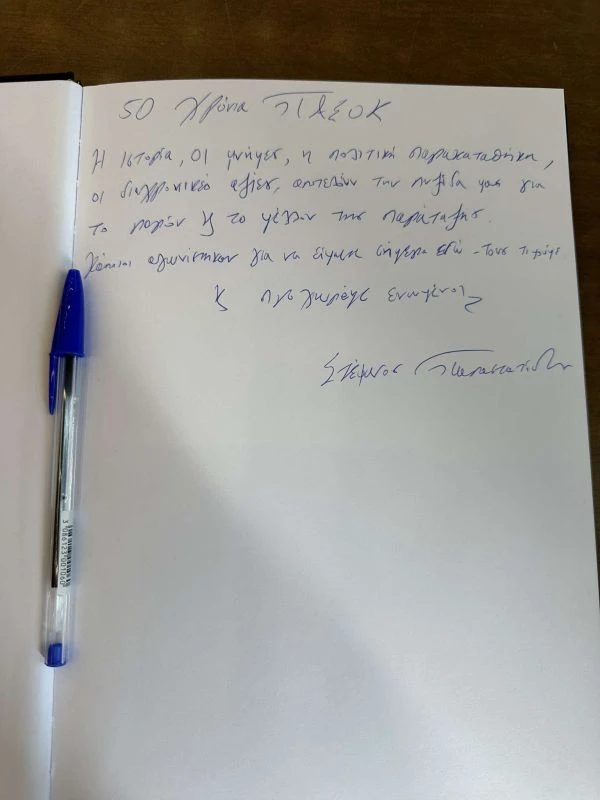 50 χρόνια ΠΑΣΟΚ
Η ιστορία, οι μνήμες, η πολιτική παρακαταθήκη,
οι διαχρονικές αξίες, αποτελούν την πυξίδα μας για
το παρόν & το μέλλον της παράταξης.
Κάποιοι αγωνίστηκαν για να είμαστε σήμερα εδώ - Τους τιμούμε
& προχωράμε ενωμένοι
Στέφανος Παραστατίδης
3 086123 001060